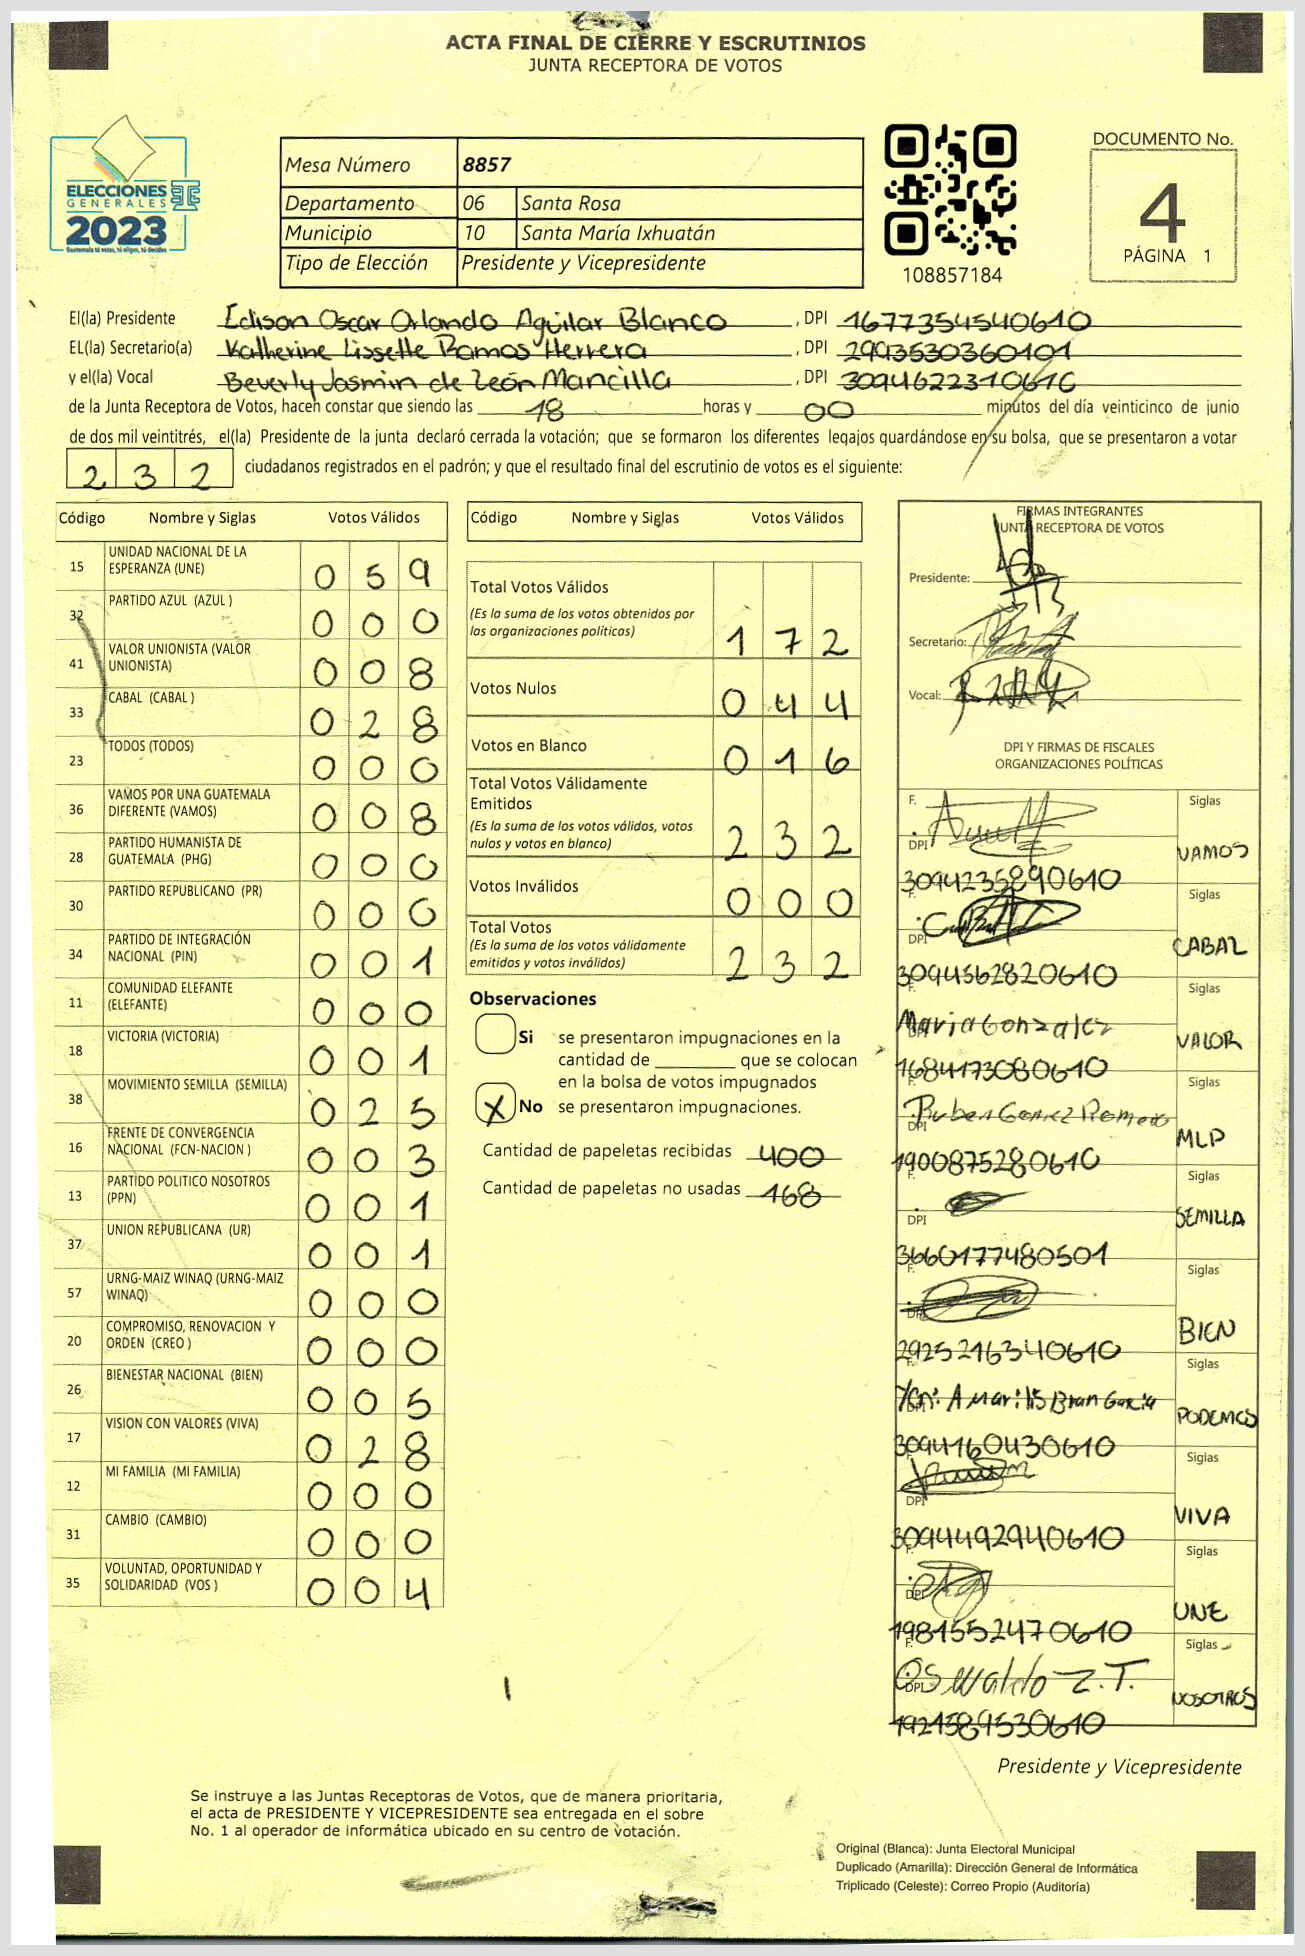 ACTA FINAL DE CIERRE Y ESCRUTINIOS
JUNTA RECEPTORA DE VOTOS
ELECCIONES
GENERALES
2023
Guatemala tú votas, tú eliges, tú decides
Mesa Número 8857
Departamento 06 Santa Rosa
Municipio 10 Santa María Ixhuatán
Tipo de Elección Presidente y Vicepresidente
108857184
DOCUMENTO No.
4
PÁGINA 1
El(la) Presidente Edison Oscar Orlando Aguilar Blanco, DPI 1677354540610
EL(la) Secretario(a) Katherine Lissette Ramos Herrera, DPI 2993530360101
y el(la) Vocal Beverly Jasmin de León Mancilla, DPI 3094622310610
de la Junta Receptora de Votos, hacen constar que siendo las 18 horas y 00 minutos del día veinticinco de junio
de dos mil veintitrés, el(la) Presidente de la junta declaró cerrada la votación; que se formaron los diferentes legajos guardándose en su bolsa, que se presentaron a votar
232 ciudadanos registrados en el padrón; y que el resultado final del escrutinio de votos es el siguiente:
Código Nombre y Siglas Votos Válidos
15 UNIDAD NACIONAL DE LA ESPERANZA (UNE) 059
32 PARTIDO AZUL (AZUL ) 000
41 VALOR UNIONISTA (VALOR UNIONISTA) 008
33 CABAL (CABAL ) 028
23 TODOS (TODOS) 000
36 VAMOS POR UNA GUATEMALA DIFERENTE (VAMOS) 008
28 PARTIDO HUMANISTA DE GUATEMALA (PHG) 000
30 PARTIDO REPUBLICANO (PR) 000
34 PARTIDO DE INTEGRACIÓN NACIONAL (PIN) 001
11 COMUNIDAD ELEFANTE (ELEFANTE) 000
18 VICTORIA (VICTORIA) 001
38 MOVIMIENTO SEMILLA (SEMILLA) 025
16 FRENTE DE CONVERGENCIA NACIONAL (FCN-NACION ) 003
13 PARTIDO POLITICO NOSOTROS (PPN) 001
37 UNION REPUBLICANA (UR) 001
57 URNG-MAIZ WINAQ (URNG-MAIZ WINAQ) 000
20 COMPROMISO, RENOVACION Y ORDEN (CREO ) 000
26 BIENESTAR NACIONAL (BIEN) 005
17 VISION CON VALORES (VIVA) 028
12 MI FAMILIA (MI FAMILIA) 000
31 CAMBIO (CAMBIO) 000
35 VOLUNTAD, OPORTUNIDAD Y SOLIDARIDAD (VOS ) 004
Código Nombre y Siglas Votos Válidos
Total Votos Válidos
(Es la suma de los votos obtenidos por
las organizaciones políticas) 172
Votos Nulos 044
Votos en Blanco 016
Total Votos Válidamente
Emitidos
(Es la suma de los votos válidos, votos
nulos y votos en blanco) 232
Votos Inválidos 000
Total Votos
(Es la suma de los votos válidamente
emitidos y votos inválidos) 232
Observaciones
Si se presentaron impugnaciones en la
cantidad de ________ que se colocan
en la bolsa de votos impugnados
X No se presentaron impugnaciones.
Cantidad de papeletas recibidas 400
Cantidad de papeletas no usadas 168
FIRMAS INTEGRANTES
JUNTA RECEPTORA DE VOTOS
Presidente:
Secretario:
Vocal:
DPI Y FIRMAS DE FISCALES
ORGANIZACIONES POLÍTICAS
F. Siglas
DPI VAMOS
3094235890610
F. Siglas
DPI CABAL
3094562820610
F. Siglas
Maria Gonzalez
DPI VALOR
1684173080610
F. Siglas
Ruben Gomez Romero
DPI MLP
1900875280610
F. Siglas
DPI SEMILLA
3660177480501
F. Siglas
DPI BIEN
2925216340610
F. Siglas
Amarilis Bran Garcia
DPI PODEMOS
3094160430610
F. Siglas
DPI VIVA
3094492940610
F. Siglas
DPI UNE
1981552470610
F. Siglas
Oswaldo Z.T.
DPI NOSOTROS
1921589530610
Presidente y Vicepresidente
Se instruye a las Juntas Receptoras de Votos, que de manera prioritaria,
el acta de PRESIDENTE Y VICEPRESIDENTE sea entregada en el sobre
No. 1 al operador de informática ubicado en su centro de votación.
Original (Blanca): Junta Electoral Municipal
Duplicado (Amarilla): Dirección General de Informática
Triplicado (Celeste): Correo Propio (Auditoría)